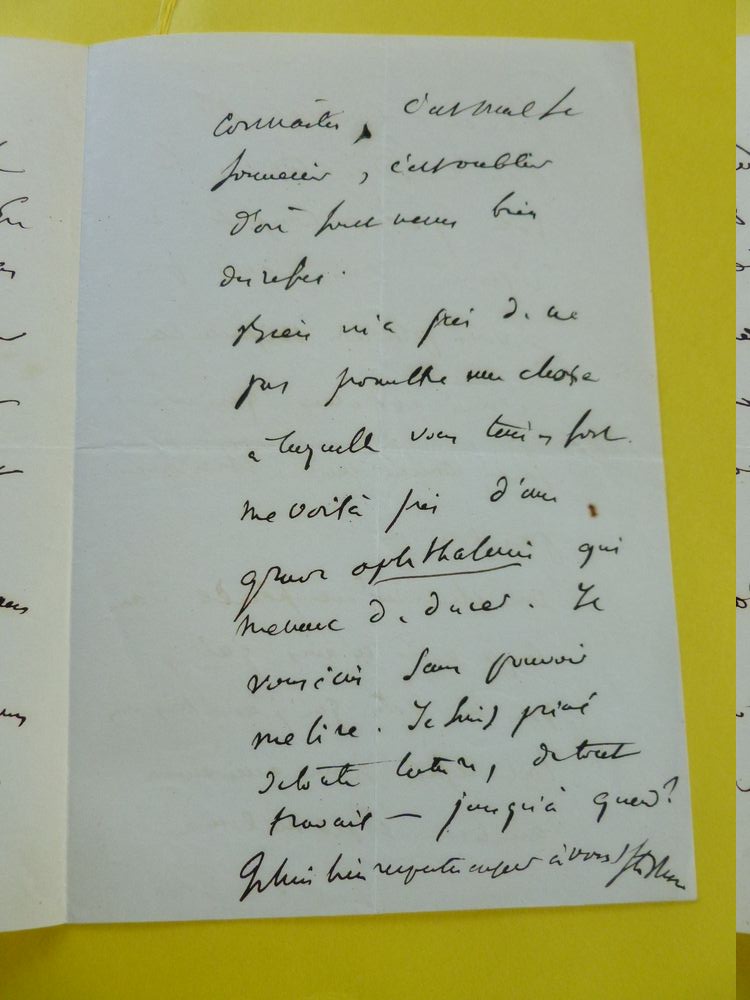 connaître, c'est mal se
souvenir, c'est oublier
d'où sont venus bien
des refus.
bien m'a pris de ne
pas promettre une chose
à laquelle vous teniez fort.
me voilà pris d'une
grave ophthalmie qui
menace de durer. Je
vous écris sans pouvoir
me lire. Je suis privé
de toute lecture, de tout
travail — jusqu'à quand?
bien respectueusement à vous